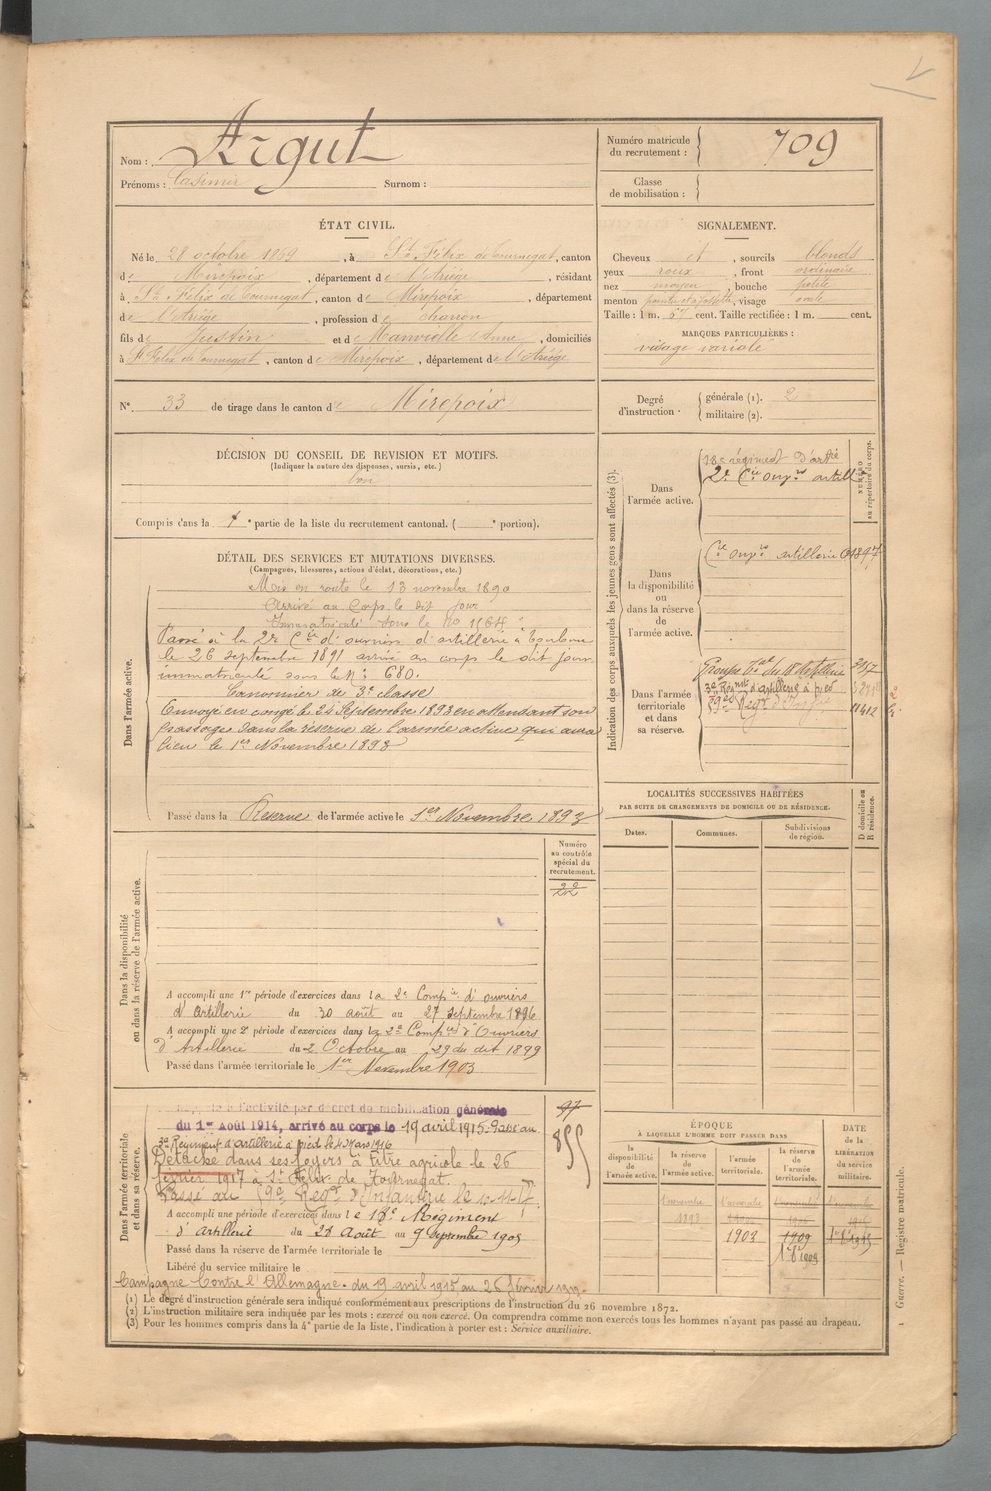 Nom : Argut
Prénoms : Casimir Surnom :
Numéro matricule du recrutement : 709
Classe de mobilisation :
ÉTAT CIVIL.
Né le 28 octobre 1869, à St Félix de Tournegat, canton
de Mirepoix, département de l'Ariège, résidant
à St Félix de Tournegat, canton de Mirepoix, département
de l'Ariège, profession de charron
fils de Justin et de Manvielle Anne, domiciliés
à St Félix de Tournegat, canton de Mirepoix, département de l'Ariège
N° 33 de tirage dans le canton de Mirepoix
SIGNALEMENT.
Cheveux et, sourcils blonds
yeux roux, front ordinaire
nez moyen, bouche petite
menton pointu et à fossette, visage ovale
Taille : 1 m. 67 cent. Taille rectifiée : 1 m. cent.
MARQUES PARTICULIÈRES :
visage variolé
Degré d'instruction : générale (1). 2
militaire (2).
DÉCISION DU CONSEIL DE REVISION ET MOTIFS.
(Indiquer la nature des dispenses, sursis, etc.)
bon
Compris dans la 1e partie de la liste du recrutement cantonal. ( e portion).
DÉTAIL DES SERVICES ET MUTATIONS DIVERSES.
(Campagnes, blessures, actions d'éclat, décorations, etc.)
Dans l'armée active.
Mis en route le 13 novembre 1890
Arrivé au Corps le dit jour
Immatriculé sous le no 1164
Passé à la 2e Cie d'ouvriers d'artillerie à Toulouse
le 26 septembre 1891 arrivé au corps le dit jour
immatriculé sous le N° 680.
Canonnier de 3e classe
Envoyé en congé le 24 Septembre 1893 en attendant son
passage dans la réserve de l'armée active qui aura
lieu le 1er Novembre 1893
Passé dans la Réserve de l'armée active le 1er Novembre 1893
Indication des corps auxquels les jeunes gens sont affectés (3).
NUMÉRO au répertoire du corps.
Dans l'armée active.
18e régiment d'artrie
2e Cie ouvrs artill
Dans la disponibilité ou dans la réserve de l'armée active.
Cie ouvrs artillerie 01897
Dans l'armée territoriale et dans sa réserve.
Groupe Tal du 18e Artillerie 2157
3e Régiment d'artillerie à pied
59e Régt d'Infie 11412
LOCALITÉS SUCCESSIVES HABITÉES
PAR SUITE DE CHANGEMENTS DE DOMICILE OU DE RÉSIDENCE.
Dates. Communes. Subdivisions de région. D domicile ou R résidence.
Dans la disponibilité ou dans la réserve de l'armée active.
Numéro au contrôle spécial du recrutement.
22
A accompli une 1re période d'exercices dans la 2e Compie d'ouvriers
d'Artillerie du 30 août au 27 septembre 1896
A accompli une 2e période d'exercices dans la 2e Compie d'Ouvriers
d'Artillerie du 2 Octobre au 29 du dit 1899
Passé dans l'armée territoriale le 1er Novembre 1903
Dans l'armée territoriale et dans sa réserve.
Rappelé à l'activité par décret de mobilisation générale
du 1er Août 1914, arrivé au corps le 19 avril 1915. Passé au
3e Régiment d'artillerie à pied le 4 Mars 1916
Détaché dans ses foyers à titre agricole le 26
février 1917 à St Félix de Tournegat.
Passé au 59e Régt d'Infanterie le
A accompli une période d'exercices dans le 18e Régiment
d'Artillerie du 28 Août au 9 Septembre 1905
Passé dans la réserve de l'armée territoriale le
Libéré du service militaire le
Campagne Contre l'Allemagne. du 19 avril 1915 au 26 février 1917
97
855
ÉPOQUE
À LAQUELLE L'HOMME DOIT PASSER DANS
la disponibilité de l'armée active. la réserve de l'armée active. l'armée territoriale. la réserve de l'armée territoriale.
DATE de la LIBÉRATION du service militaire.
1er novembre 1er novembre 1er novembre 1er novembre
1893
1903 1909 1er 8bre 1915
1er 8bre 1909
(1) Le degré d'instruction générale sera indiqué conformément aux prescriptions de l'instruction du 26 novembre 1872.
(2) L'instruction militaire sera indiquée par les mots : exercé ou non exercé. On comprendra comme non exercés tous les hommes n'ayant pas passé au drapeau.
(3) Pour les hommes compris dans la 4e partie de la liste, l'indication à porter est : Service auxiliaire.
1 Guerre. — Registre matricule.